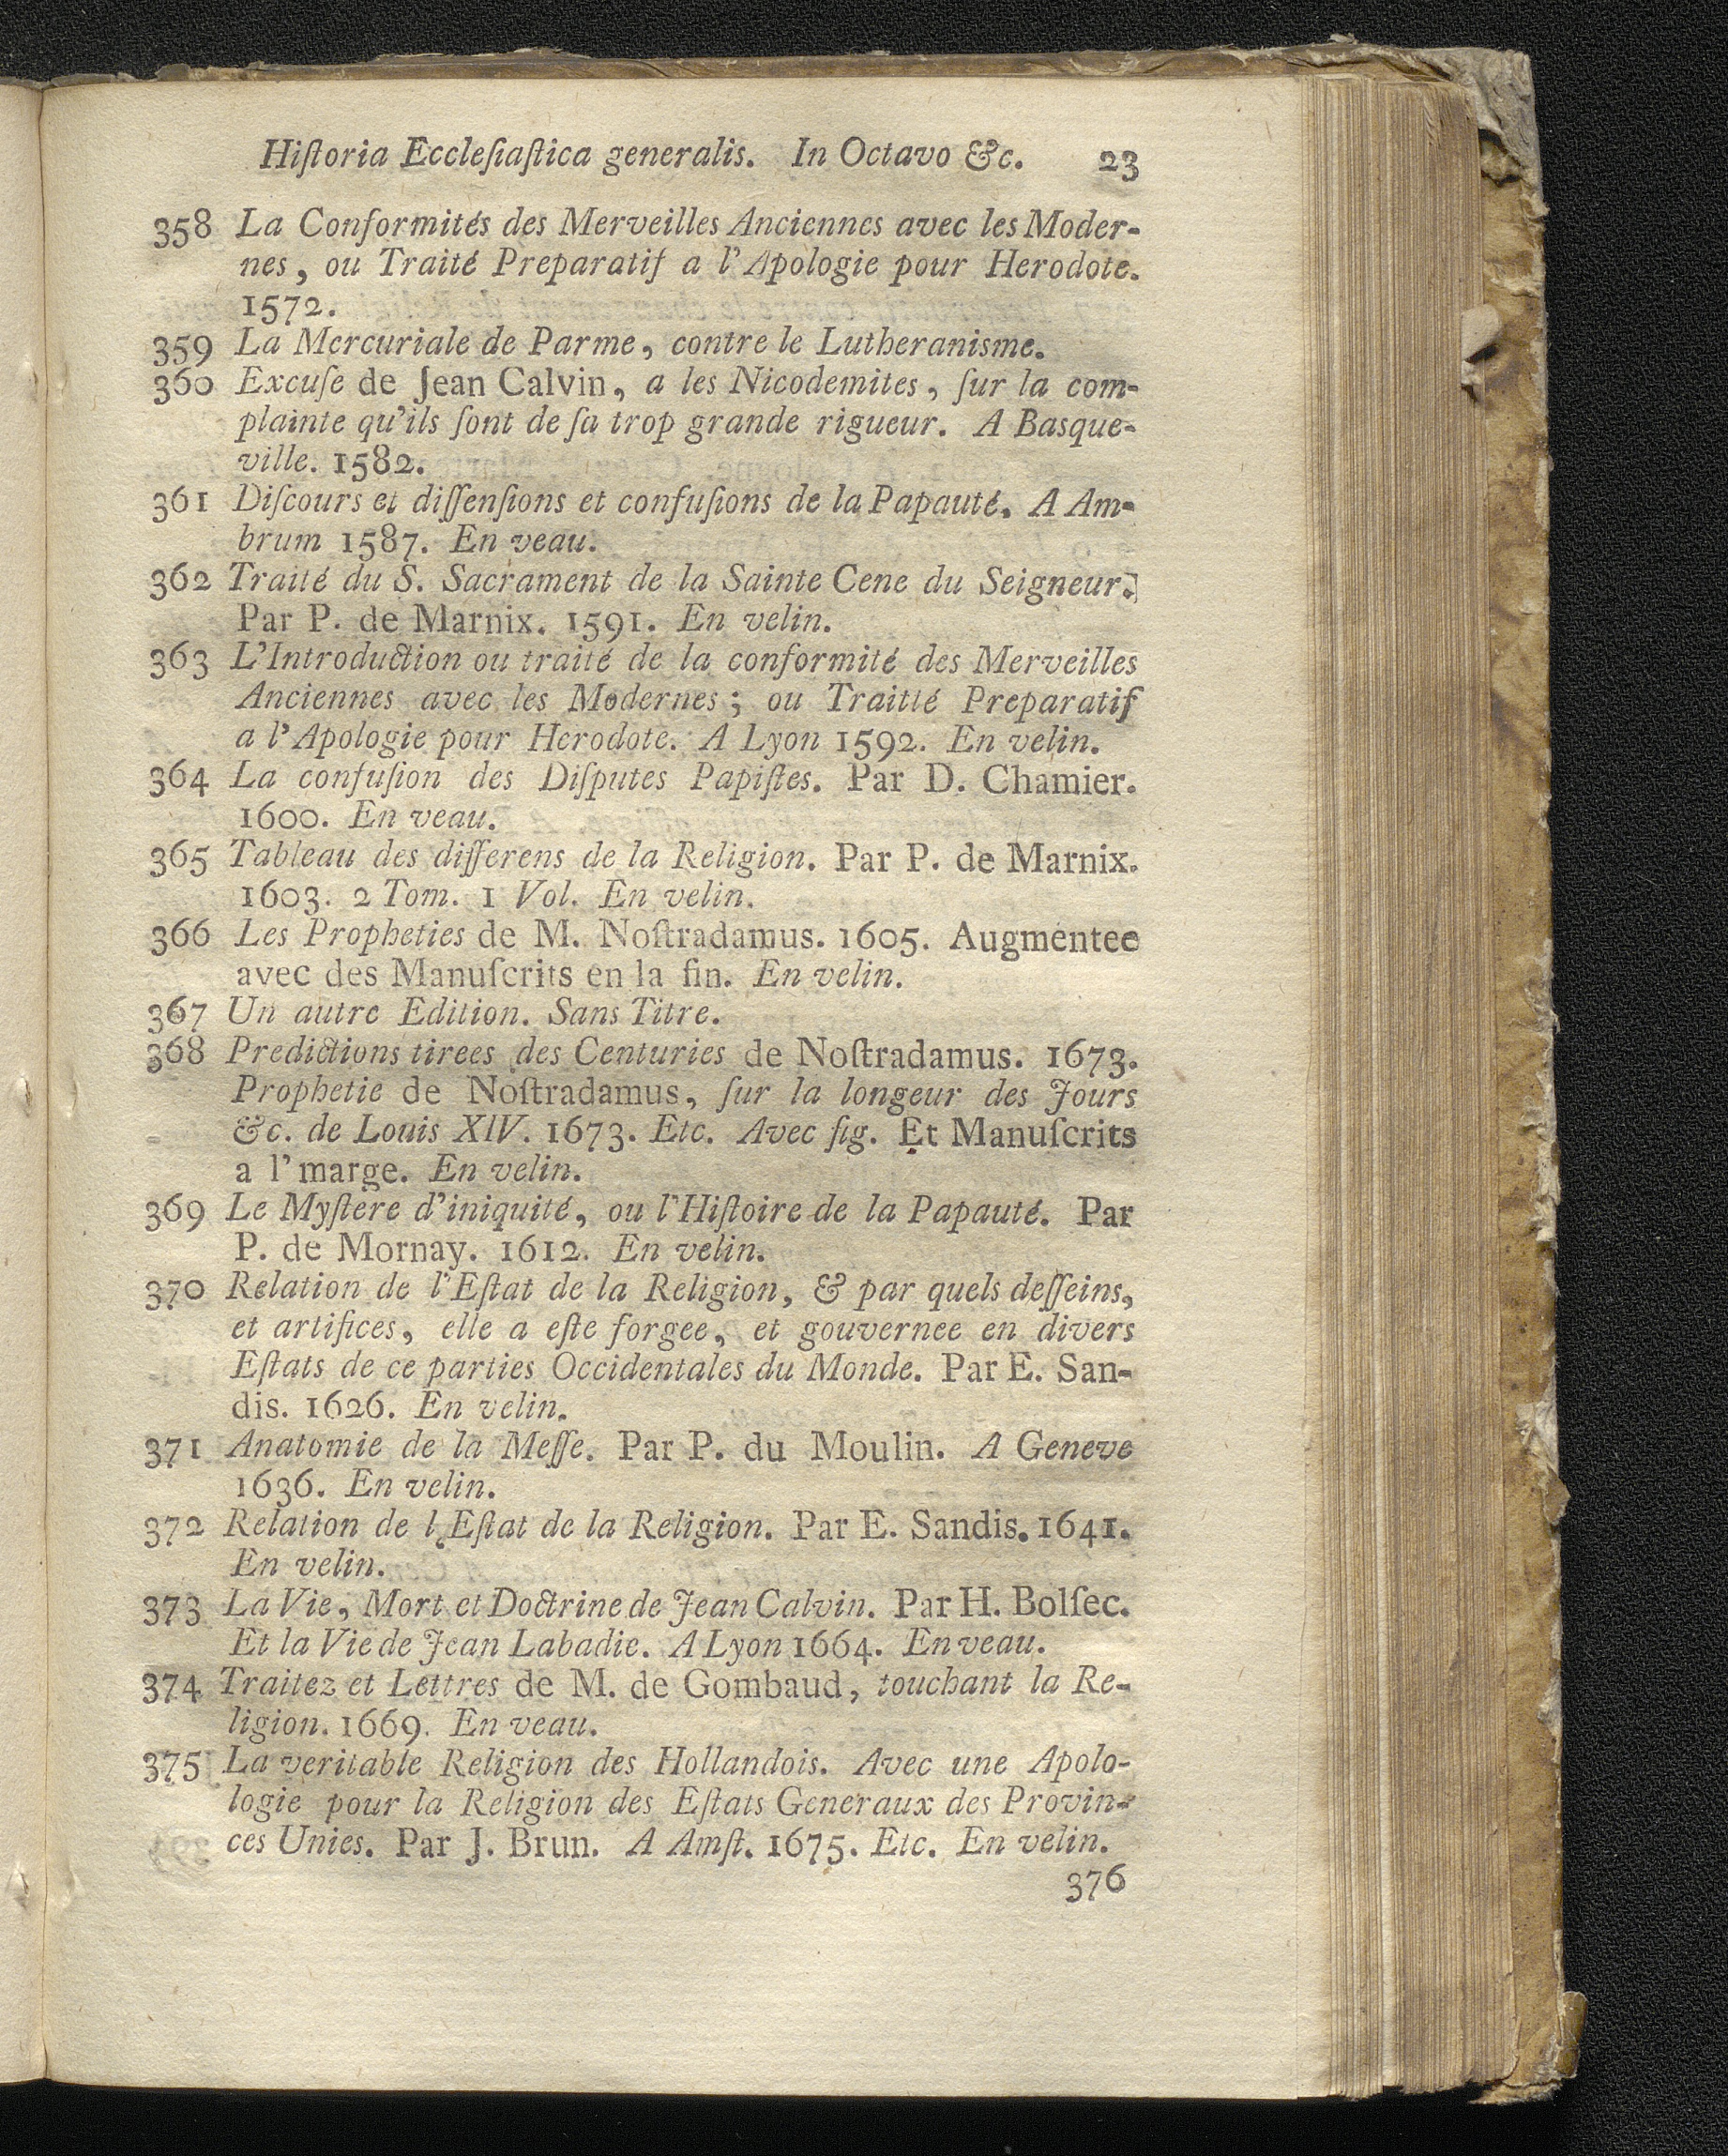 Hiſtoria Eccleſiaſtica generalis. In Octavo &c. 23
358 La Conformités des Merveilles Anciennes avec les Moder-
nes, ou Traité Preparatif a l'Apologie pour Herodote.
1572.
359 La Mercuriale de Parme, contre le Lutheranisme.
360 Excuſe de Jean Calvin, a les Nicodemites, ſur la com-
plainte qu'ils ſont de ſa trop grande rigueur. A Basque-
ville. 1582.
361 Diſcours et diſſenſions et confuſions de la Papauté. A Am-
brum 1587. En veau.
362 Traité du S. Sacrament de la Sainte Cene du Seigneur.
Par P. de Marnix. 1591. En velin.
363 L'Introduction ou traité de la conformité des Merveilles
Anciennes avec les Modernes; ou Traitté Preparatif
a l'Apologie pour Herodote. A Lyon 1592. En velin.
364 La confuſion des Diſputes Papiſtes. Par D. Chamier.
1600. En veau.
365 Tableau des differens de la Religion. Par P. de Marnix.
1603. 2 Tom. 1 Vol. En velin.
366 Les Propheties de M. Noſtradamus. 1605. Augmentee
avec des Manuſcrits en la fin. En velin.
367 Un autre Edition. Sans Titre.
368 Predictions tirees des Centuries de Noſtradamus. 1673.
Prophetie de Noſtradamus, ſur la longeur des Jours
&c. de Louis XIV. 1673. Etc. Avec fig. Et Manuſcrits
a l'marge. En velin.
369 Le Myſtere d'iniquité, ou l'Hiſtoire de la Papauté. Par
P. de Mornay. 1612. En velin.
370 Relation de l'Eſtat de la Religion, & par quels deſſeins,
et artifices, elle a eſte forgee, et gouvernee en divers
Eſtats de ce parties Occidentales du Monde. Par E. San-
dis. 1626. En velin.
371 Anatomie de la Meſſe. Par P. du Moulin. A Geneve
1636. En velin.
372 Relation de l Eſtat de la Religion. Par E. Sandis. 1641.
En velin.
373 La Vie, Mort et Doctrine de Jean Calvin. Par H. Bolſec.
Et la Vie de Jean Labadie. A Lyon 1664. En veau.
374 Traitez et Lettres de M. de Gombaud, touchant la Re-
ligion. 1669. En veau.
375 La veritable Religion des Hollandois. Avec une Apolo-
logie pour la Religion des Eſtats Generaux des Provin-
ces Unies. Par J. Brun. A Amſt. 1675. Etc. En velin.
376